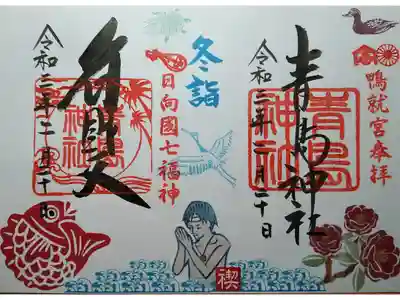 鴨就宮奉拝
青島神社
青島
神社
令和三年二月二十日
冬詣
日向國七福神
禊
青島
神社
令和三年二月二十日